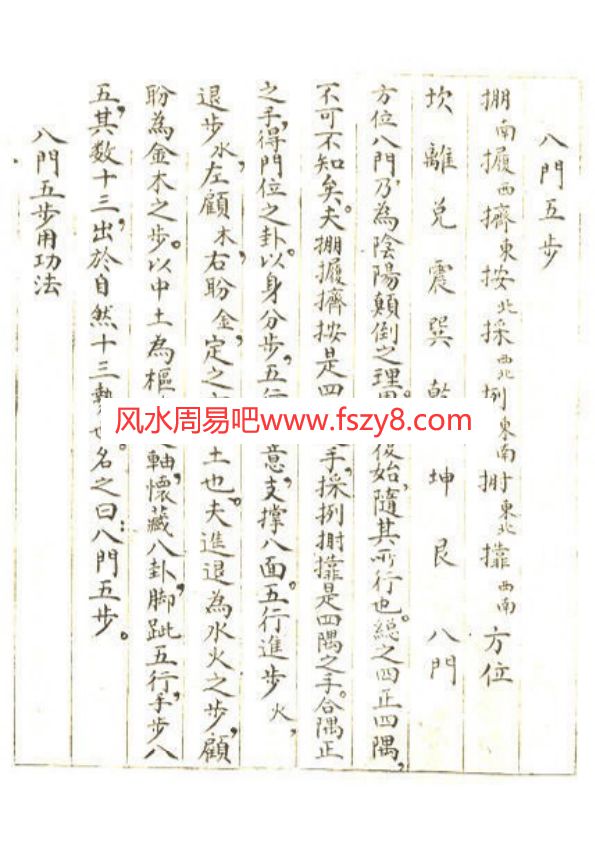 八門五步
掤南攦西擠東按北採西北挒東南掤東北攠西南方位
坎離兌震巽乾坤艮八門
方位八門乃為陰陽顛倒之理後始隨其所行也。總之四正四隅，
不可不知矣。夫掤攦擠按是四手，採挒攠是四隅之手。合隅正
之手，得門位之卦。以身分步，五行意，支撐八面。五行進步火，
退步水，左顧木，右盼金，定之土也。夫進退為水火之步，顧
盼為金木之步。以中土為樞軸，懷藏八卦，脚跐五行，手步八
五，其數十三，出於自然十三勢也。名之曰：八門五步。
八門五步用功法
风水周易吧www.fszy8.com